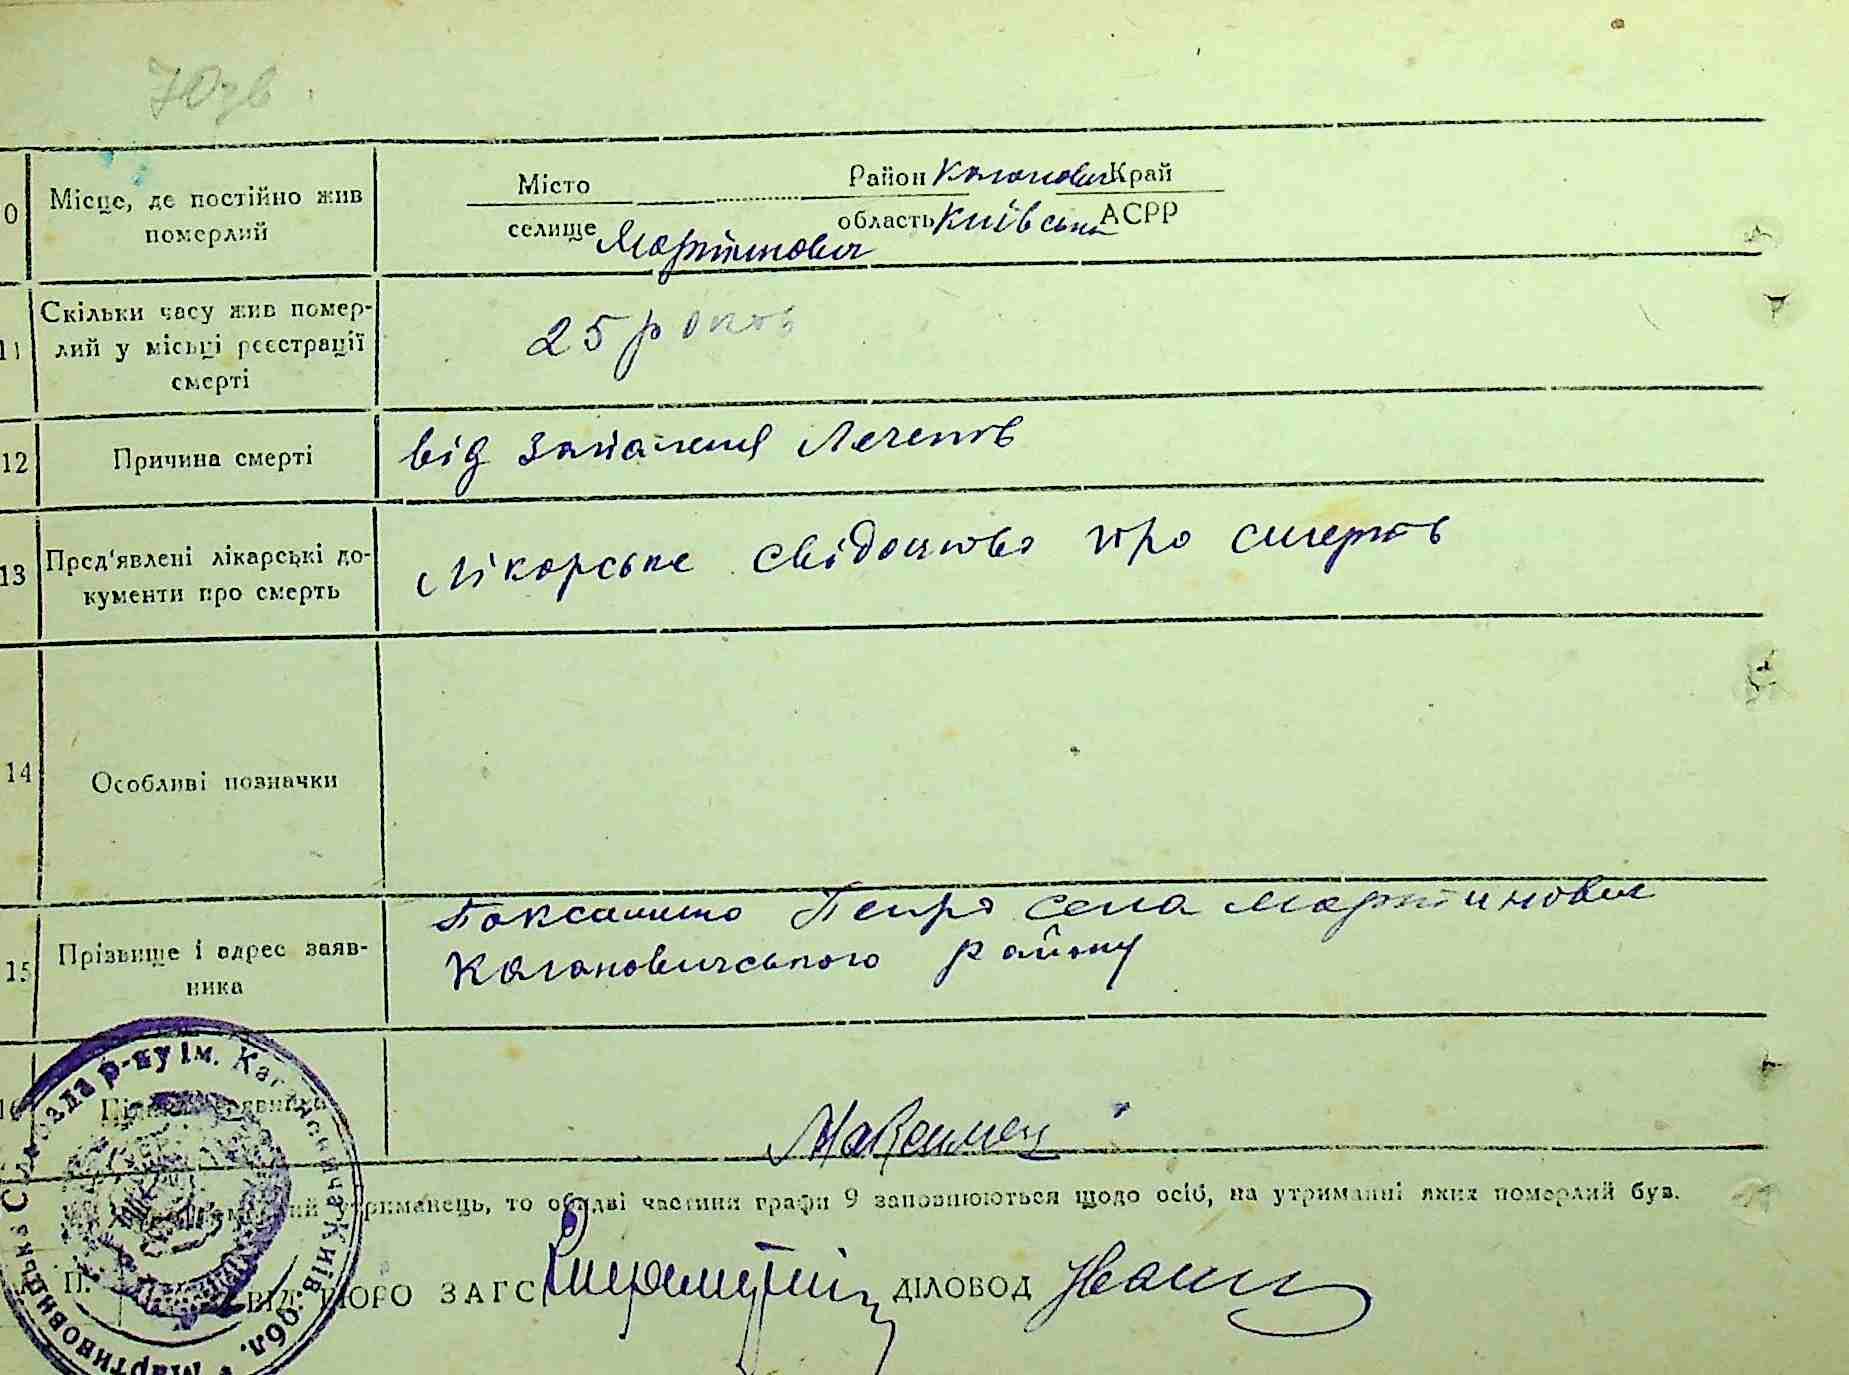 70зв
10 Місце, де постійно жив померлий
Місто Район Каганович Край
селище Мартинович область Київська АСРР
11 Скільки часу жив помер-
лий у місьці реєстрації
смерті
25 років
12 Причина смерті
від запалення Легенів
13 Пред'явлені лікарські до-
кументи про смерть
Лікарське свідоцтво про смерть
14 Особливі позначки
15 Прізвище і адрес заяв-
ника
Петро села Мартинович
Кагановичського району
16 Підпис заявника
утриманець, то обидві частини графи 9 заповнюються щодо осіб, на утриманні яких померлий був.
П.
ЗАВ. БЮРО ЗАГС
ДІЛОВОД
Мартиновицька Сільрада р-ну ім. Кагановича Київ. обл.